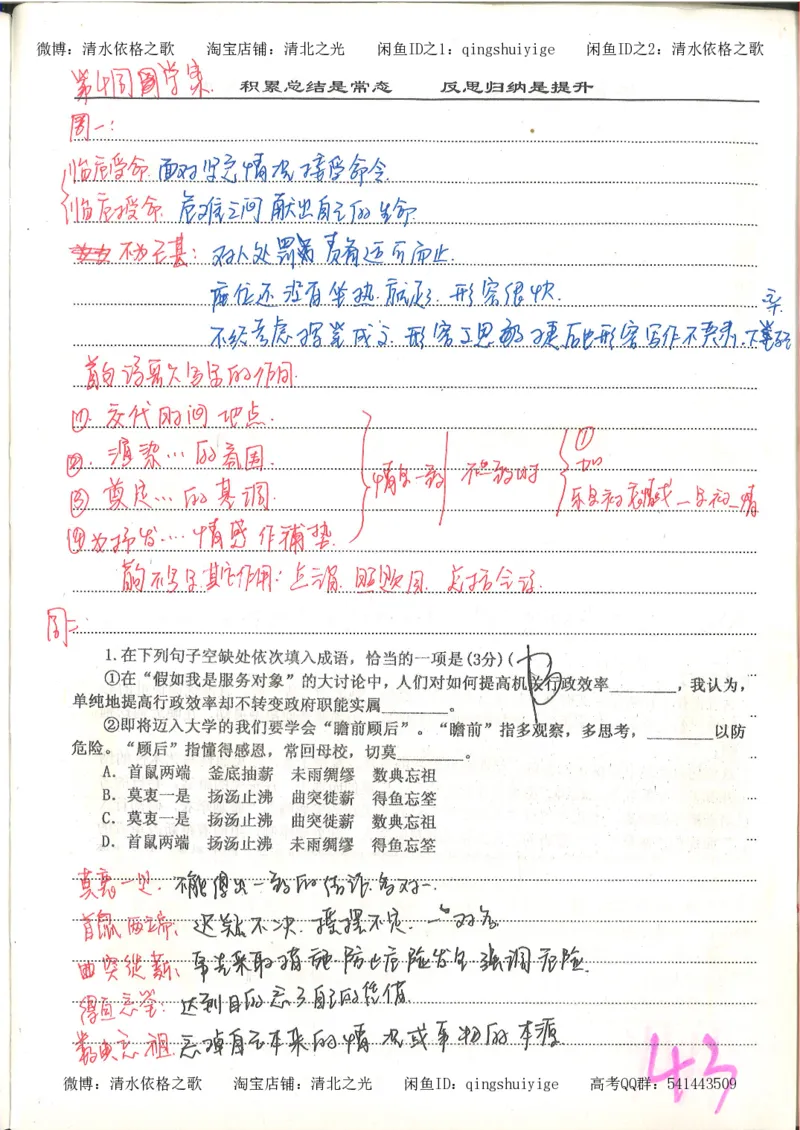 微博：清水依格之歌 淘宝店铺：清北之光 闲鱼ID之1：qingshuiyige 闲鱼ID之2：清水依格之歌
第4周国学集
积累总结是常态 反思归纳是提升
周一：
临危受命 面对紧急情况接受命令
临危授命 危难之间献出自己的生命
不为已甚：对人处罚 责备适可而止
座位还没有坐热 就走了 形容很快
不经考虑挥笔成文 形容文思敏捷后也形容写作不
景的作用
①. 交代时间 地点.
②. 渲染…的氛围.
③ 奠定…的基调.
④为抒发…情感作铺垫.
情景一致 不一致时
①
周二
1.在下列句子空缺处依次填入成语，恰当的一项是(3分)( B
①在“假如我是服务对象”的大讨论中，人们对如何提高机关行政效率________，我认为，
单纯地提高行政效率却不转变政府职能实属________。
②即将迈入大学的我们要学会“瞻前顾后”。“瞻前”指多观察，多思考，________以防
危险。“顾后”指懂得感恩，常回母校，切莫________。
A．首鼠两端 釜底抽薪 未雨绸缪 数典忘祖
B．莫衷一是 扬汤止沸 曲突徙薪 得鱼忘筌
C．莫衷一是 扬汤止沸 曲突徙薪 数典忘祖
D．首鼠两端 扬汤止沸 未雨绸缪 得鱼忘筌
莫衷一是. 不能得出一致的结论.
首鼠两端: 迟疑不决. 摇摆不定.
曲突徙薪: 事先采取措施 防止危险发生 强调危险.
得鱼忘筌: 达到目的忘了自己的
数典忘祖. 忘掉自己本来的情况或事物的本源.
43
微博：清水依格之歌 淘宝店铺：清北之光 闲鱼ID：qingshuiyige 高考QQ群：541443509